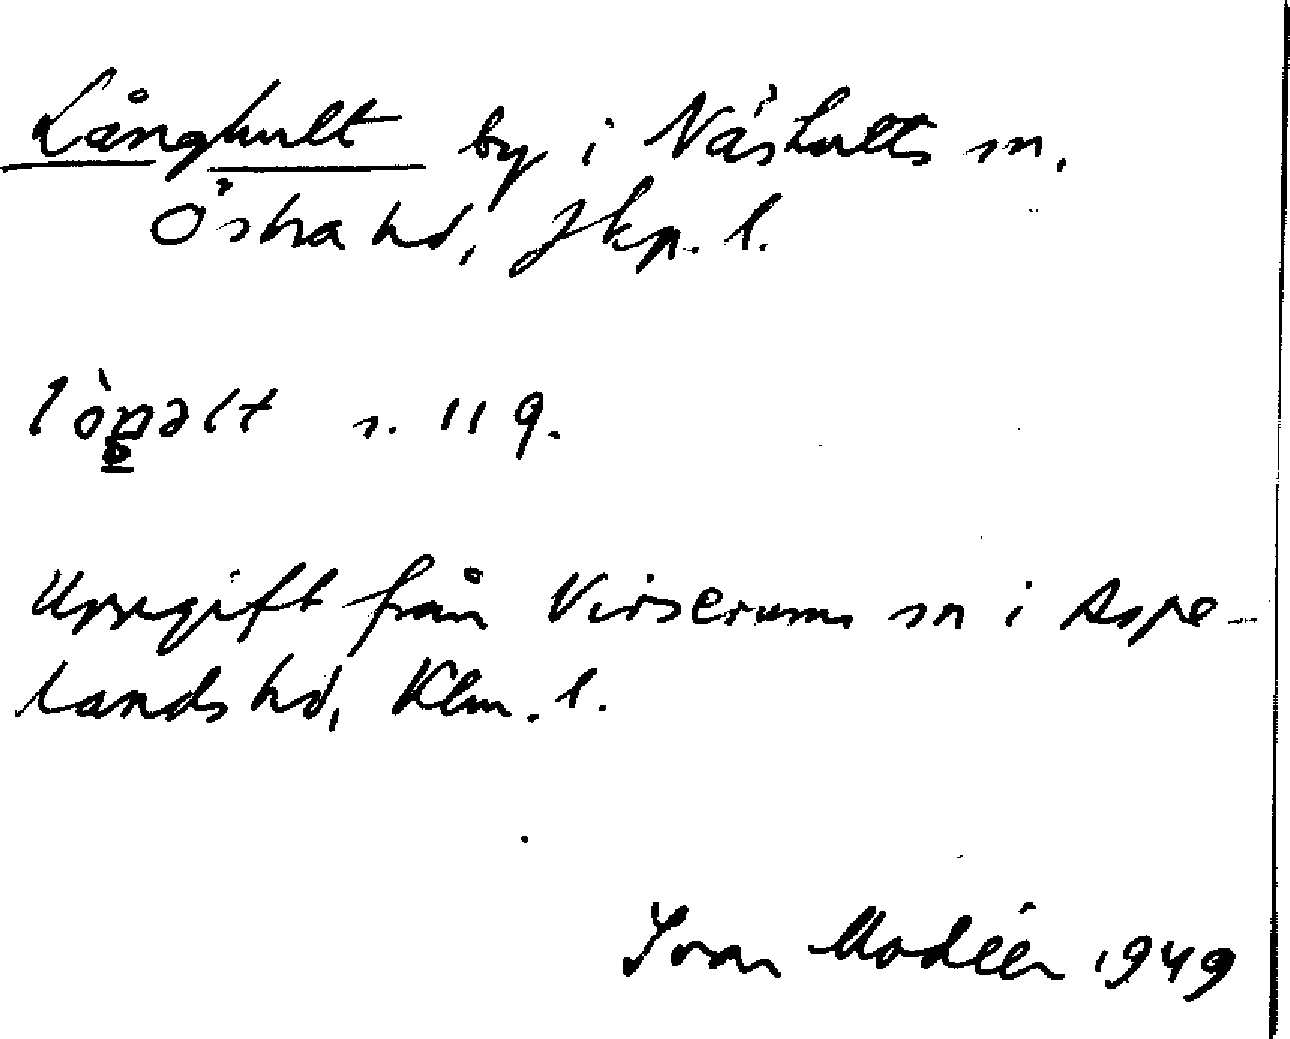 Långhult by i Näshults sn.
Östra hd, Jkp. l.
lòŋəlt s. 119.
Uppgift från Virserums sn i Aspe-
lands hd, Klm. l.
Ivar Modéer 1949